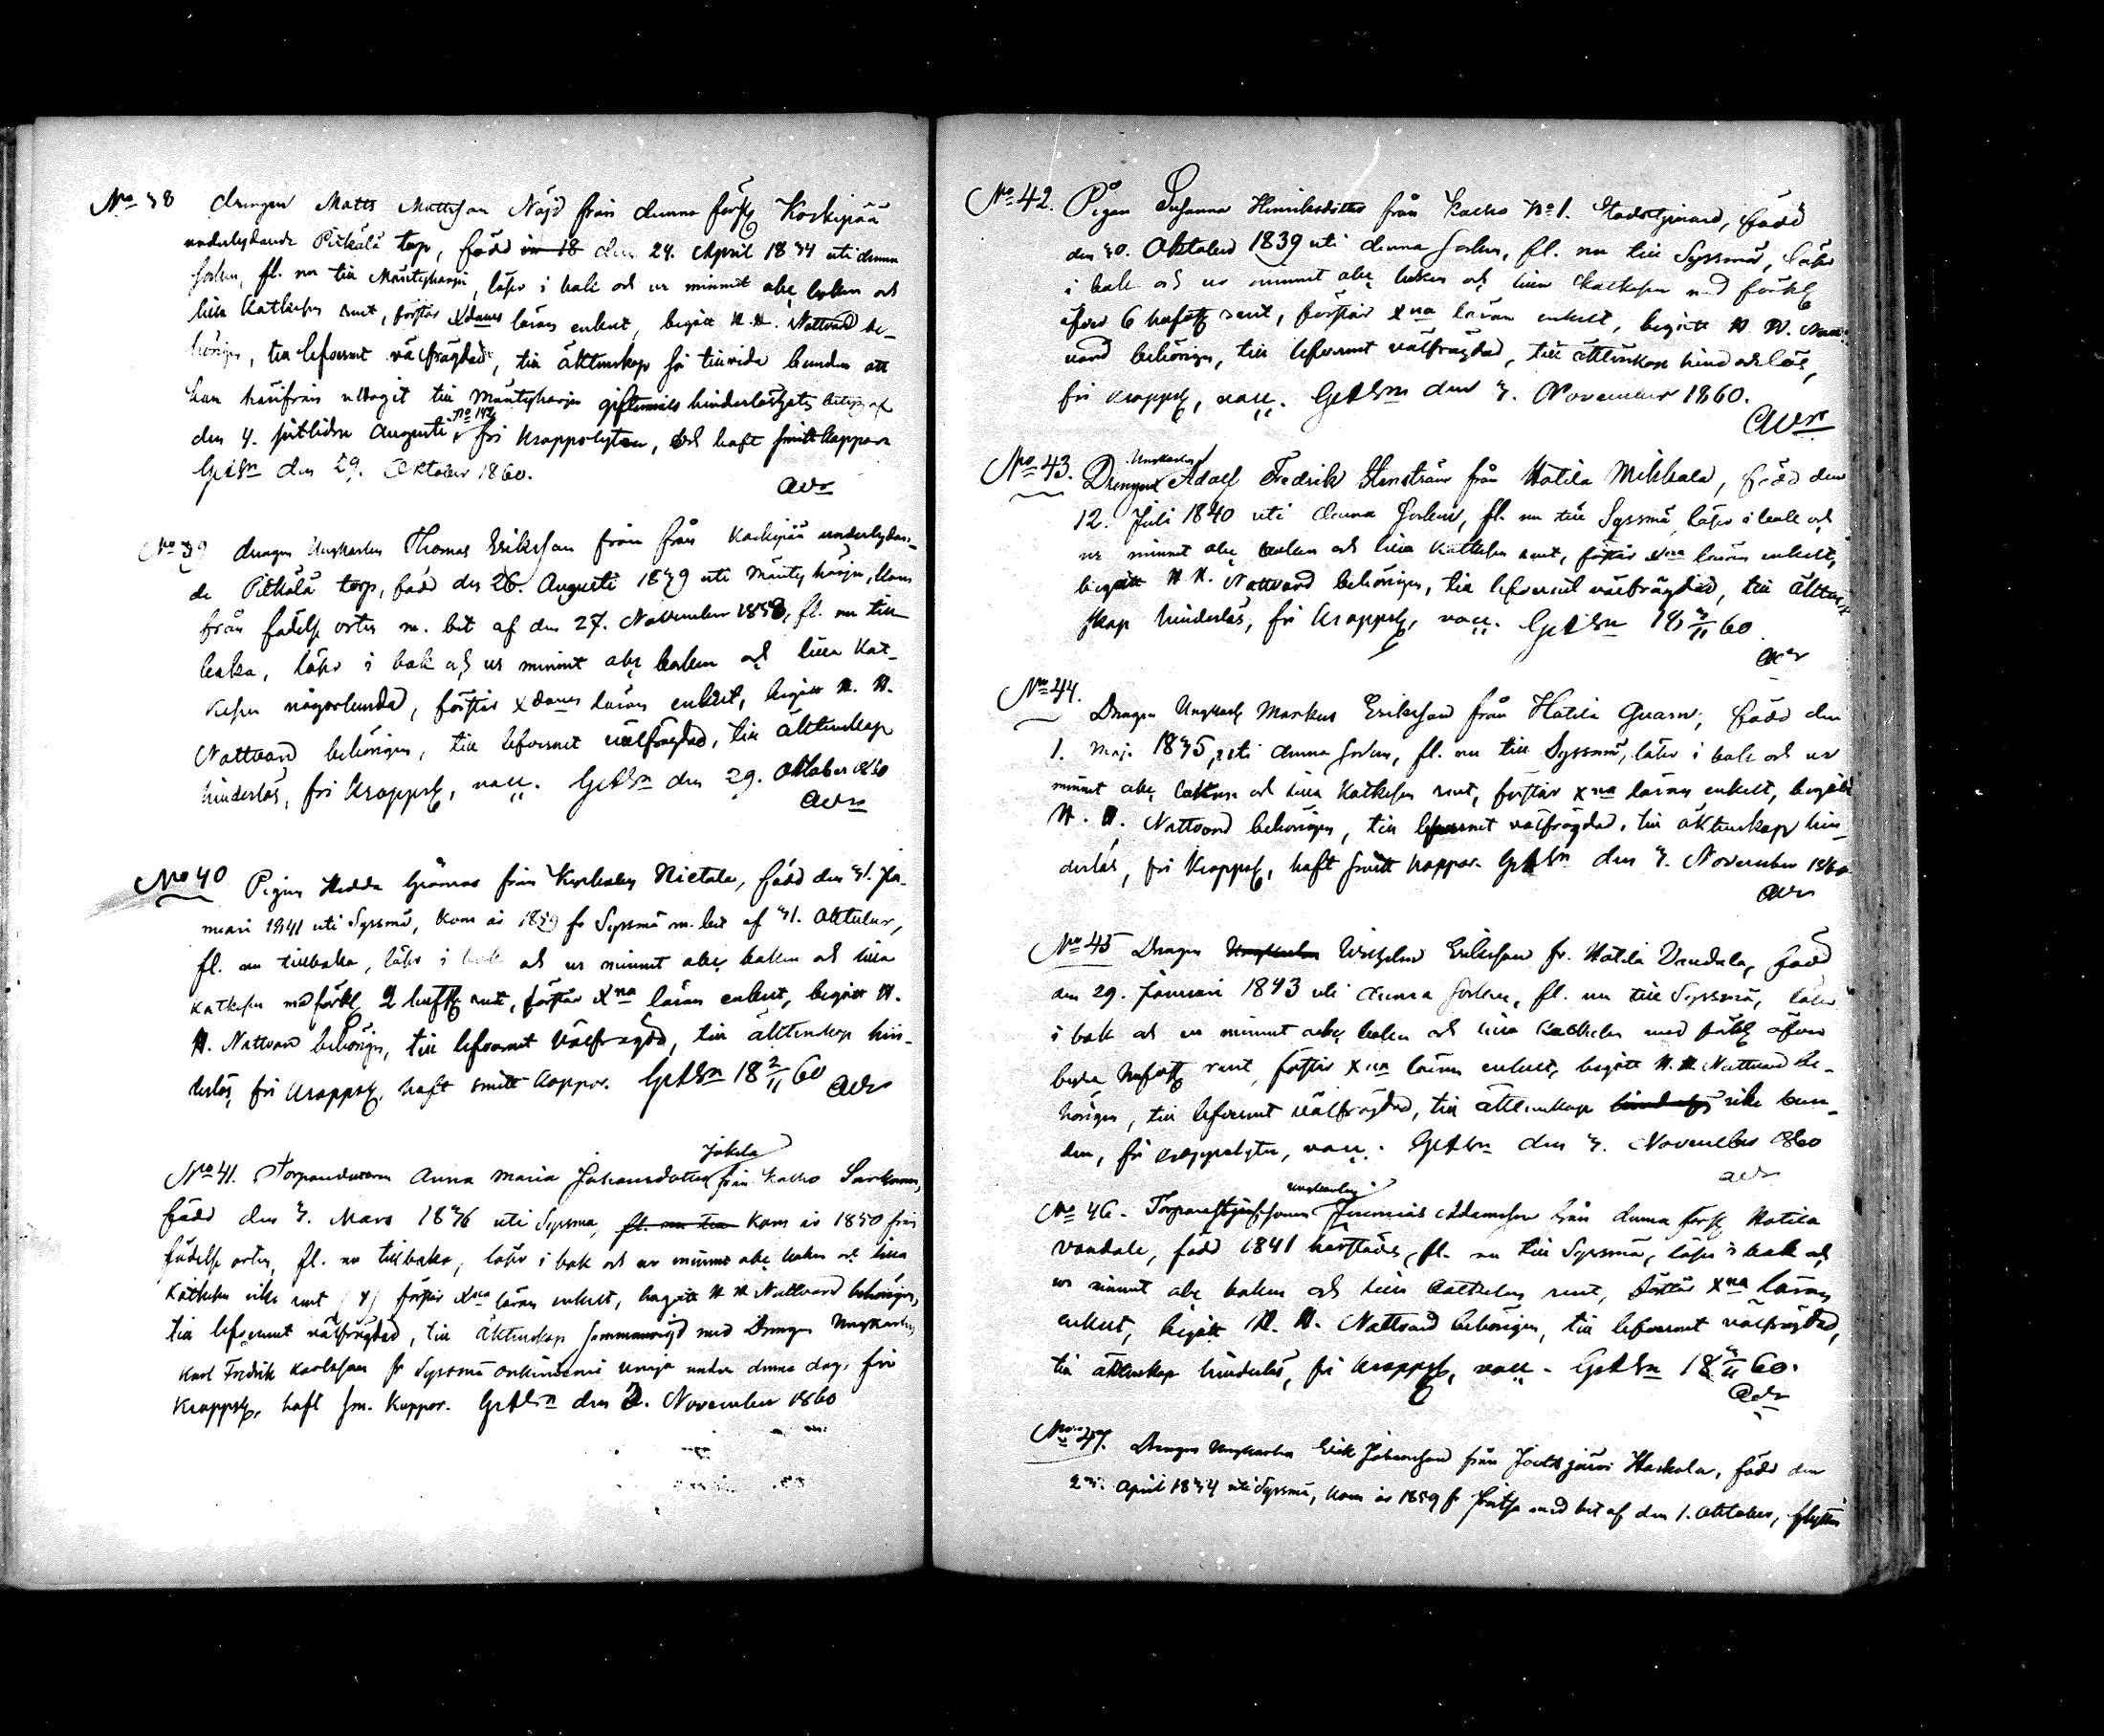 No 38 drengen Matts Mattsson Nöjd från denna förs. Koskipää
underlydande Pitkälä torp, född den 24. April 1834 uti denna
socken, fl. nu till Mäntyharju, läser i bok och ur minnet abc boken och
lilla Katkesen rent, förstår Xdoms läran enkelt, begått H. H. Nattvard be-
hörigen, till lefvernet välfrägdad, till äktenskap så tillvida bunden att
han härifrån uttagit till Mäntyharju hinderlöshets betyg af
den 4. sistlidne Augusti No 142, fri Kroppslyten, och haft smittkoppor
GrtSn den 29. Oktober 1860.
avr
No 39 drengen Ungkarlen Thomas Eriksson från från Koskipää underlydan-
de Pitkälä torp, född den 26. Augusti 1839 uti Mäntyharju, kom
från födelse orten m. bet af den 27. November 1858, fl. nu till-
baka, läser i bok och ur minnet abc boken och lilla Kat-
kesen någorlunda, förstår Xdoms läran enkelt, begått H. H.
Nattvard behörigen, till lefvernet välfrägdad, till äktenskap
hinderlös, fri Kropps, vacc. GrtSn den 29. Oktober 1860
avr
No 40 Pigan Hedda från Nietola, född den 31. Ja-
nuari 1841 uti Syssmä, kom år 1859 fr Syssmä m. bet af 31. Oktober,
fl. nu tillbaka, läser i bok och ur minnet abc boken och lilla
Katkesen med förkl. 2 hufst rent, förstår Xna läran enkelt, begått H.
H. Nattvard behörigen, till lefvernet välfrägdad, till äktenskap hin-
derlös, fri Kropps, haft smitt koppor. GrtSn 18 2/11 60 avr
Jokela
No 41. Torpandottren Anna Maria Johansdotter från Kalho
född den 3. Mars 1836 uti Syssmä, fl. nu till kom år 1850 från
födelse orten, fl. nu tillbaka, läser i bok och ur minnet abc boken och lilla
Katkesen icke rent förstår Xna läran enkelt, begått H H Nattvard behörigen,
till lefvernet välfrägdad, till äktenskap med Drengen Ungkarlen
Karl Fredrik Karlsson fr Syssmä under denna dag, fri
Kropps, haft sm. Koppor. GrtSn den 2. November 1860
No 42. Pigan Susanna Henriksdotter från Kalho No 1. född
den 30. Oktober 1839 uti denna socken, fl. nu till Syssmä, läser
i bok och ur minnet abc boken och lilla Katkesen med förkl
öfver 6 hufst rent, förstår Xna läran enkelt, begått H. H. Natt-
vard behörigen, till lefvernet välfrägdad, till äktenskap hinderlös,
fri Kropps, vacc. GrtSn den 3. November 1860.
avr
Ungkarlen
No 43. Drengen Adolf Fredrik Stenström från Hotila Mikkala, född den
12. Juli 1840 uti denna socken, fl. nu till Syssmä, läser i bok och
ur minnet abc boken och lilla Katkesen rent, förstår Xna läran enkelt,
begått H. H. Nattvard behörigen, till lefvernet välfrägdad, till äkten-
skap hinderlös, fri Kropps, vacc. GrtSn 18 3/11 60
avr
No 44. Drengen Ungkarl Markus Eriksson från Hotila född den
1. Maji 1835, uti denna socken, fl. nu till Syssmä, läser i bok och ur
minnet abc boken och lilla Katkesen rent, förstår Xna läran enkelt, begått
H. H. Nattvard behörigen, till lefvernet välfrägdad, till äktenskap hin-
derlös, fri Kropps, haft smitt koppor. GrtSn den 3. November 1860
avr
No 45 Drengen Ungkarlen Wilhelm Eriksson fr. Hotila Vandala, född
den 29. Januari 1843 uti denna socken, fl. nu till Syssmä, läser
i bok och ur minnet abc boken och lilla Katkesen med förkl öfver
begge hufst rent, förstår Xna läran enkelt, begått H. H. Nattvard be-
hörigen, till lefvernet välfrägdad, till äktenskap icke bun-
den, fri Kroppslyten, vacc. GrtSn den 3. November 1860
avr
Ungkarlen
No 46. Jeremias Adamsson från denna förs Hotila
Vandala, född 1841 härstädes, fl. nu till Syssmä, läser i bok och
ur minnet abc boken och lilla Katkesen rent, förstår Xna läran
enkelt, begått H. H. Nattvard behörigen, till lefvernet välfrägdad,
till äktenskap hinderlös, fri Kropps, vacc. GrtSn 18 3/11 60.
avr
No 47. Drengen Ungkarlen Erik Johansson från Joutsjärvi född den
23. April 1834 uti Syssmä, kom år 1859 fr med bet af den 1. Oktober, flyttar